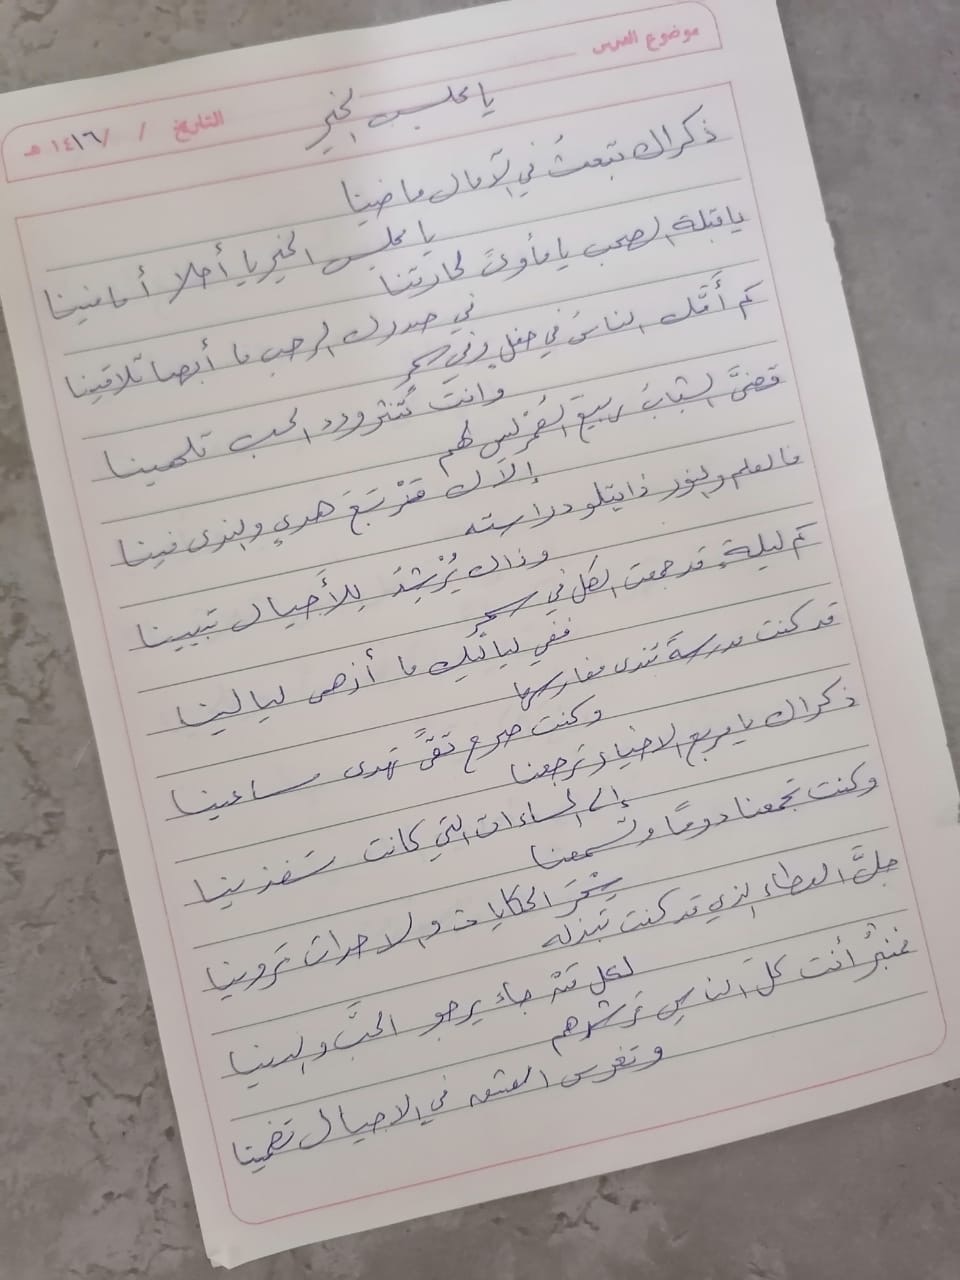 موضوع الدرس
التاريخ / / ١٤١٦ هـ
يا مجلس الخير
ذكراك تبعثُ في الآمال ماضينا
يا مجلس الخير يا أحلا أمانينا
يا قبلة الصحب يا مأوىً لحارتنا
في صدرك الرحب ما أبها تلاقينا
كم أمَّك الناسُ في حفلٍ وفي سمرٍ
وانت تنثر ورد الحب تلهينا
قضىَّ الشبابُ ربيعَ العُمْرِ ليس لهم
إلاَّك مَرْبَعَ هدي والندى فينا
فالعلم والنور ذا يتلو دراسته
وذاك يُرْشِدُ لِلأَجيال تبيينا
كم ليلة قد جمعت الكل في سمرٍ
ففي لياليك ما أزهى ليالينا
قد كنت مدرسةً تندى مغارسها
وكنت صرح تقىً تهدى مساعينا
ذكراك يا مربع الاخيار ترجعنا
إلى المساءات التي كانت تغذينا
وكنت تجمعنا دومًا وتسمعنا
سِحْرَ الحكايات والاحداث تروينا
جلَّ العطاء الذي قد كنت تبذله
لكل مَنْ جاء يرجو الحبَّ والدينا
فمنبرٌ أنت كلَّ الناسِ تُرشدهم
وتغرس العشق في الاجيال تضمينا